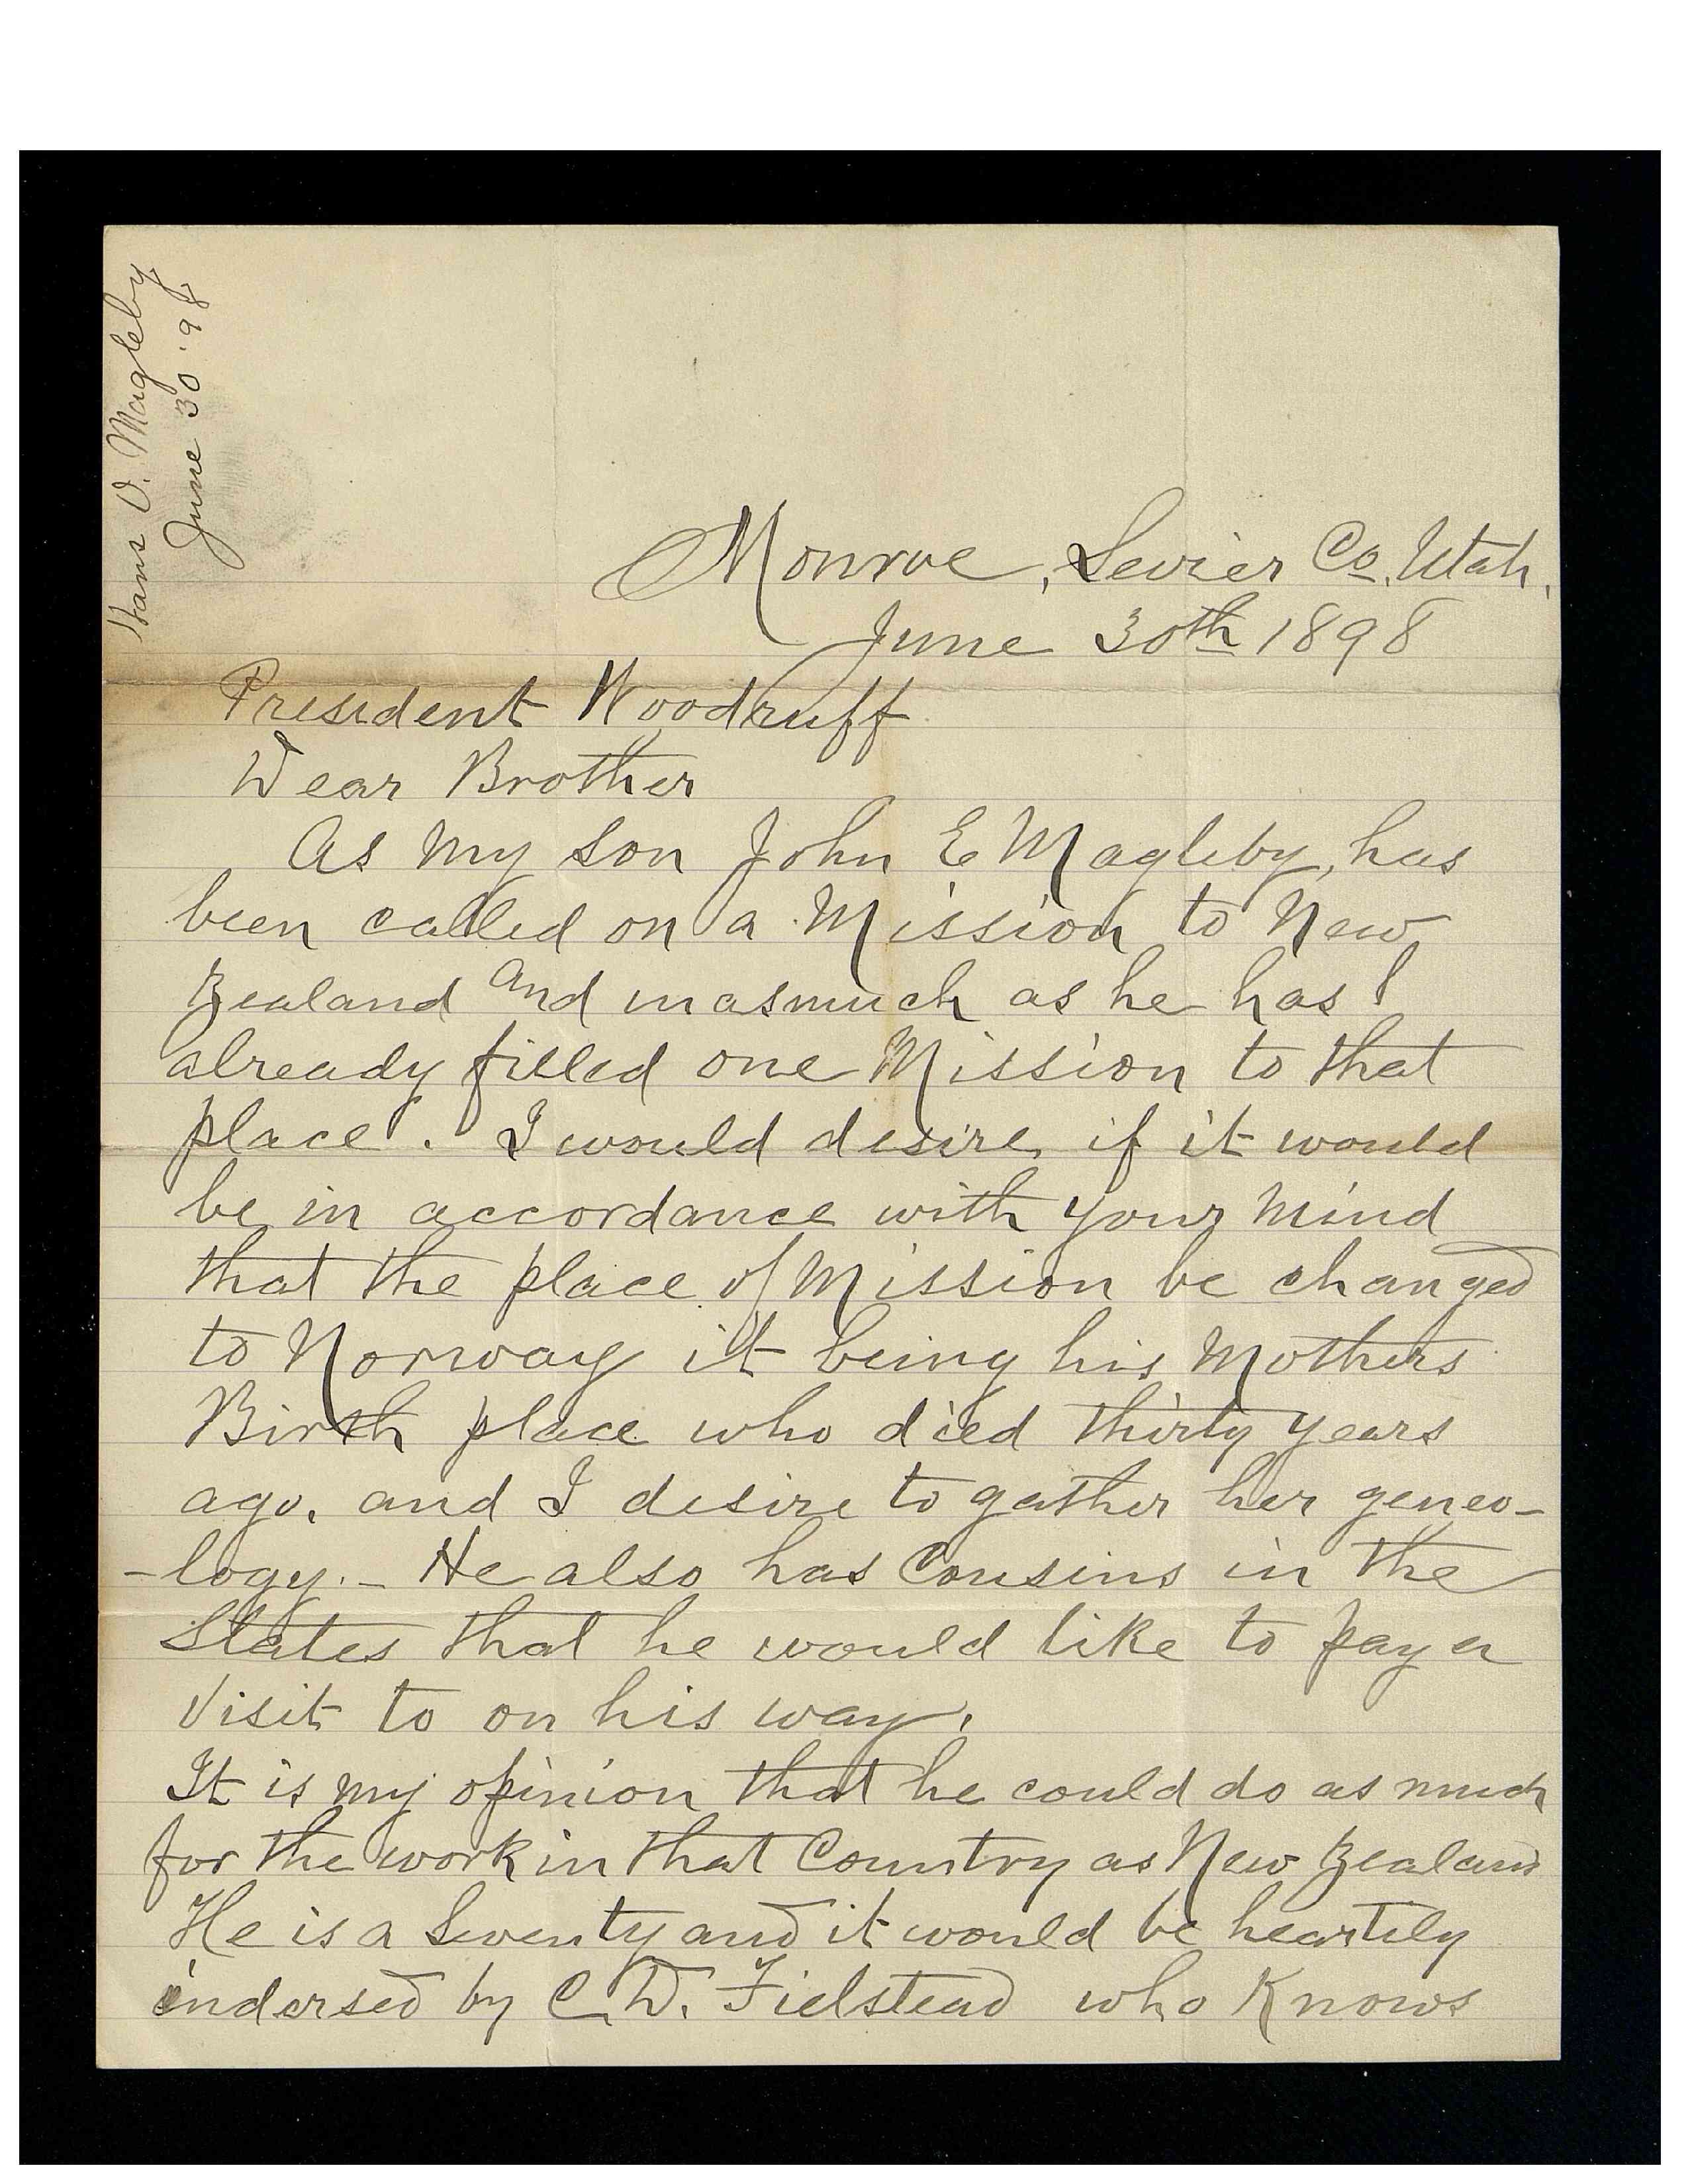 Hans O. Magleby
June 30 '98
Monroe, Sevier Co. Utah.
June 30th 1898
President Woodruff
Dear Brother
As my son John E Magleby, has
been called on a Mission to New
Zealand and inasmuch as he has
already filled one Mission to that
place. I would desire if it would
be in accordance with your mind
that the place of Mission be changed
to Norway it being his Mothers
Birth place who died thirty years
ago. and I desire to gather her geneo-
-logy. - He also has Cousins in the
States that he would like to pay a
Visit to on his way.
It is my opinion that he could do as much
for the work in that Country as New Zealand
He is a Seventy and it would be heartily
indorsed by C. D. Fielstead who Knows